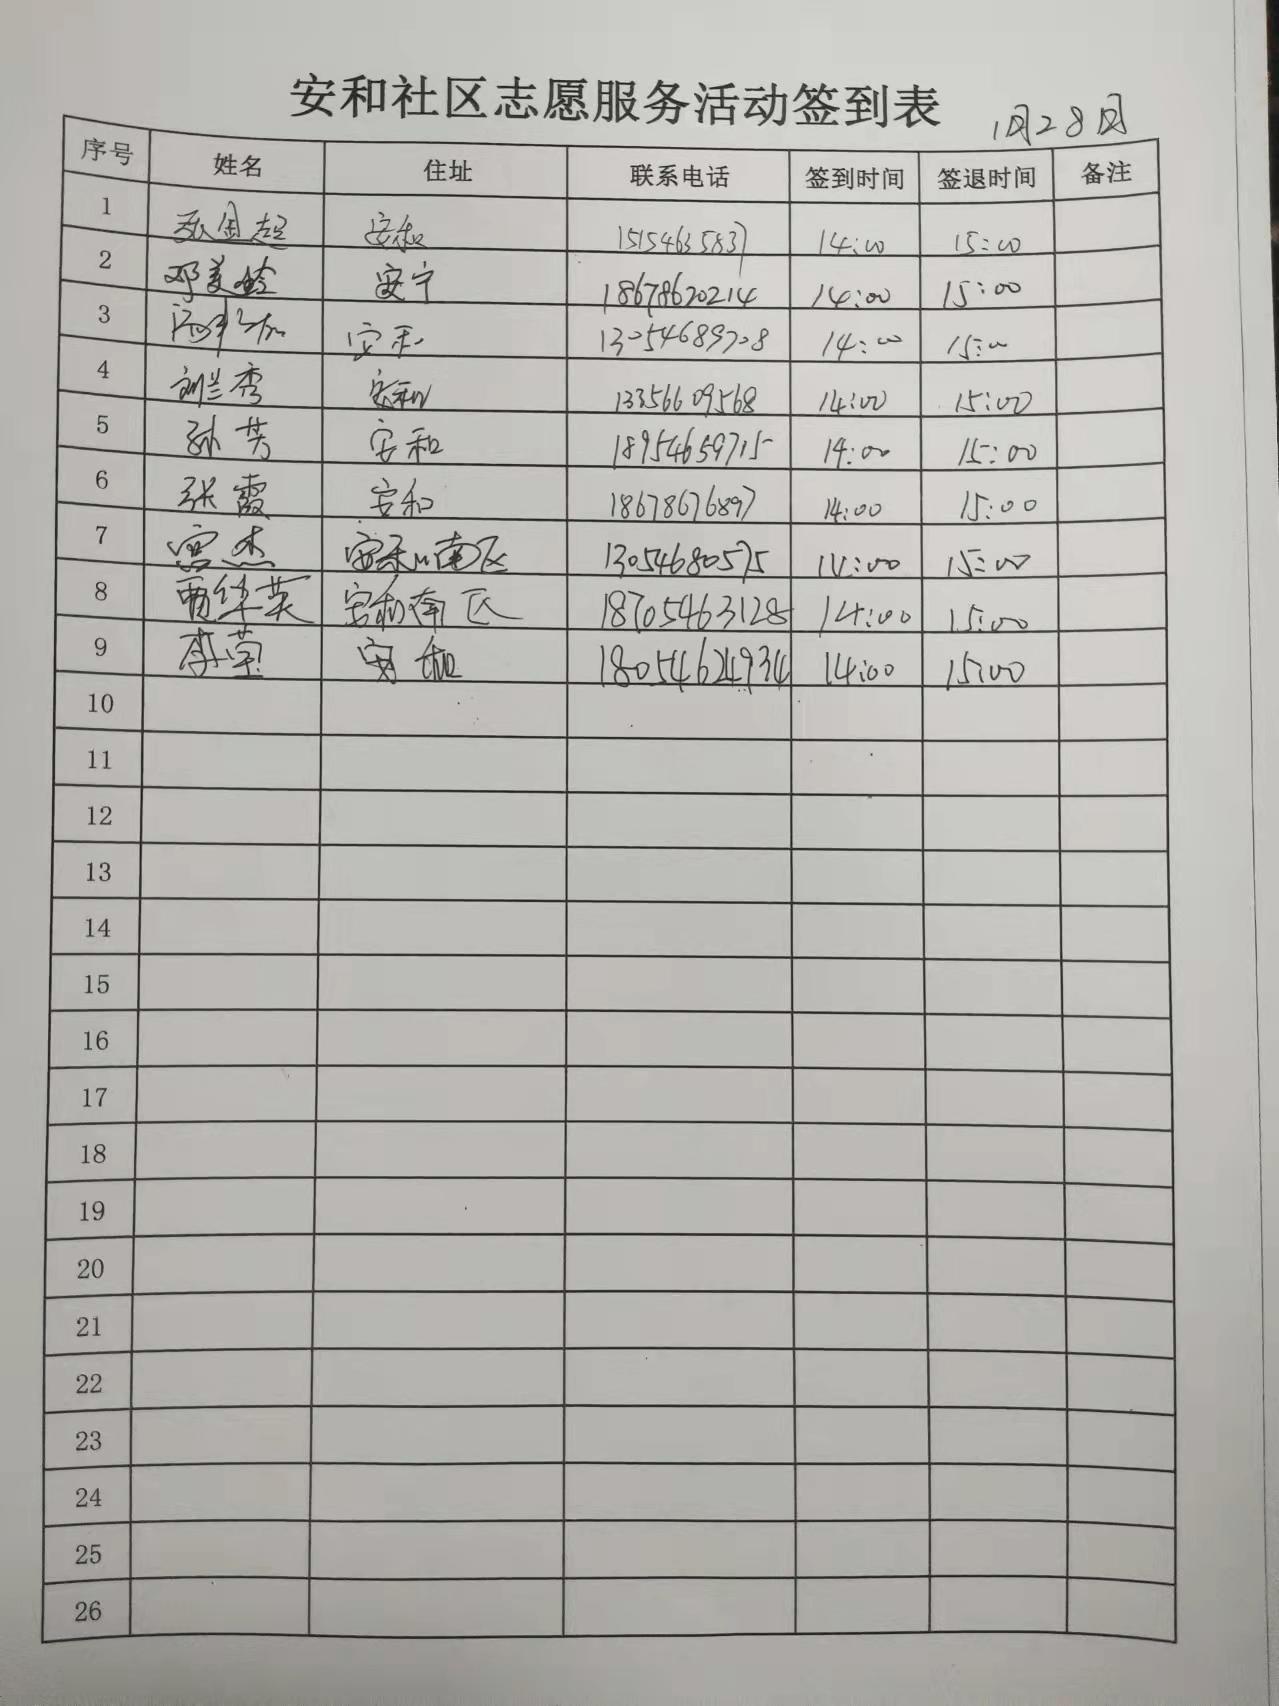 安和社区志愿服务活动签到表
1月28日
序号 姓名 住址 联系电话 签到时间 签退时间 备注
1 安和 15154635837 14:00 15:00
2 邓美玲 安宁 18678620214 14:00 15:00
3 安和 13054689708 14:00 15:00
4 刘兰秀 安和 13356609568 14:00 15:00
5 孙芳 安和 18954659715 14:00 15:00
6 张霞 安和 18678676897 14:00 15:00
7 宫杰 安和南区 13054680575 14:00 15:00
8 贾华英 安和南区 18705463128 14:00 15:00
9 李莹 安和 18054624934 14:00 15:00
10
11
12
13
14
15
16
17
18
19
20
21
22
23
24
25
26